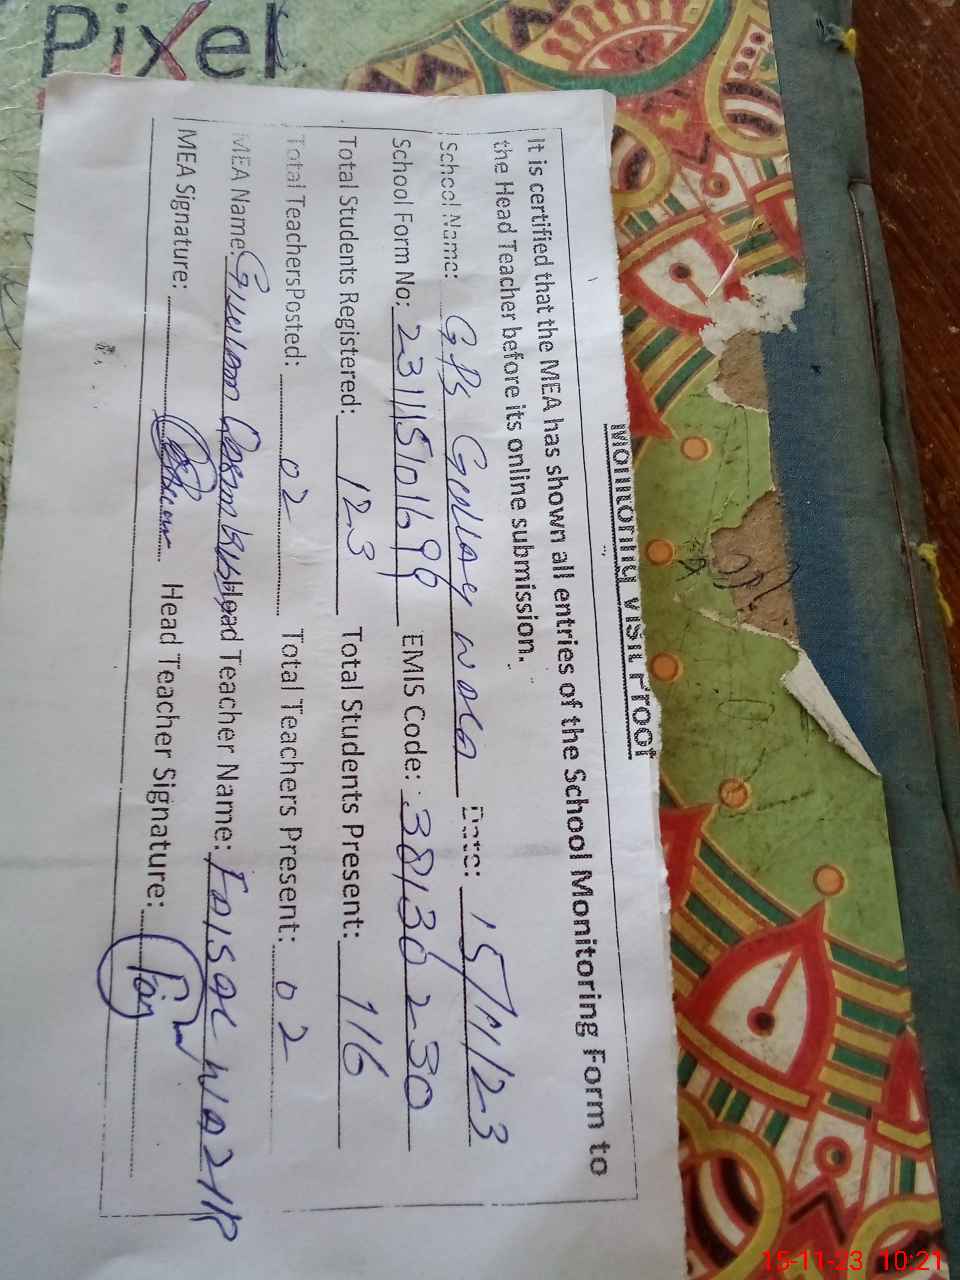 Pixel
Monitoring Visit Proof
It is certified that the MEA has shown all entries of the School Monitoring Form to
the Head Teacher before its online submission.
School Name: GPS Gullay wala Date: 15/11/23
School Form No: 231115101699 EMIS Code: 38130230
Total Students Registered: 123 Total Students Present: 116
Total TeachersPosted: 02 Total Teachers Present: 02
MEA Name: Head Teacher Name: Faisal WAZIR
MEA Signature: Head Teacher Signature:
15-11-23 10:21